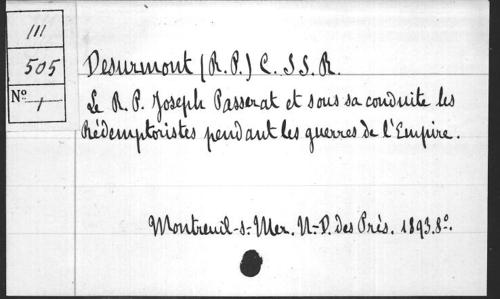 III
505
No 1
Desurmont (R.P.) C. SS.R.
Le R. P. Joseph Passerat et sous sa conduite les
Rédemptoristes pendant les guerres de l'Empire.
Montreuil-s-Mer. N.-D. des Prés. 1893. 8o.